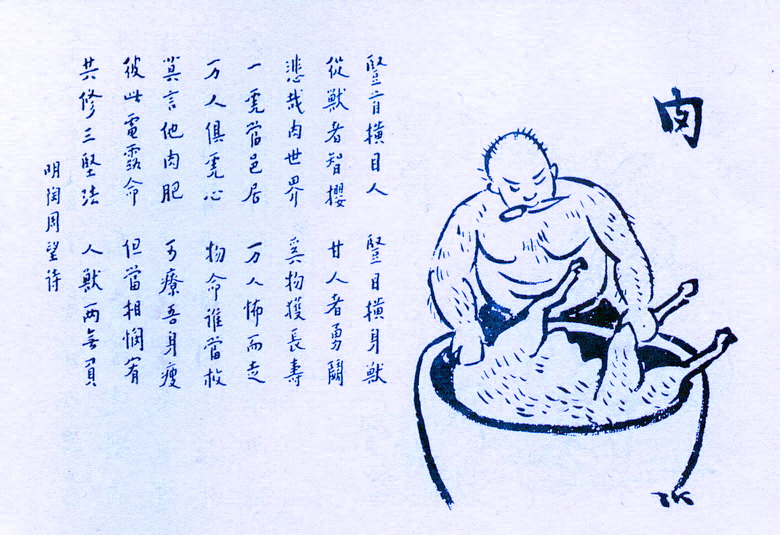 肉
豎首橫目人 豎目橫身獸
從獸者智攖 甘人者勇鬪
悲哉肉世界 奚物獲長壽
一虎當邑居 万人怖而走
万人俱虎心 物命誰當救
莫言他肉肥 可療吾身瘦
彼此電露命 但當相憫宥
共修三堅法 人獸两無負
明陶周望詩
TK